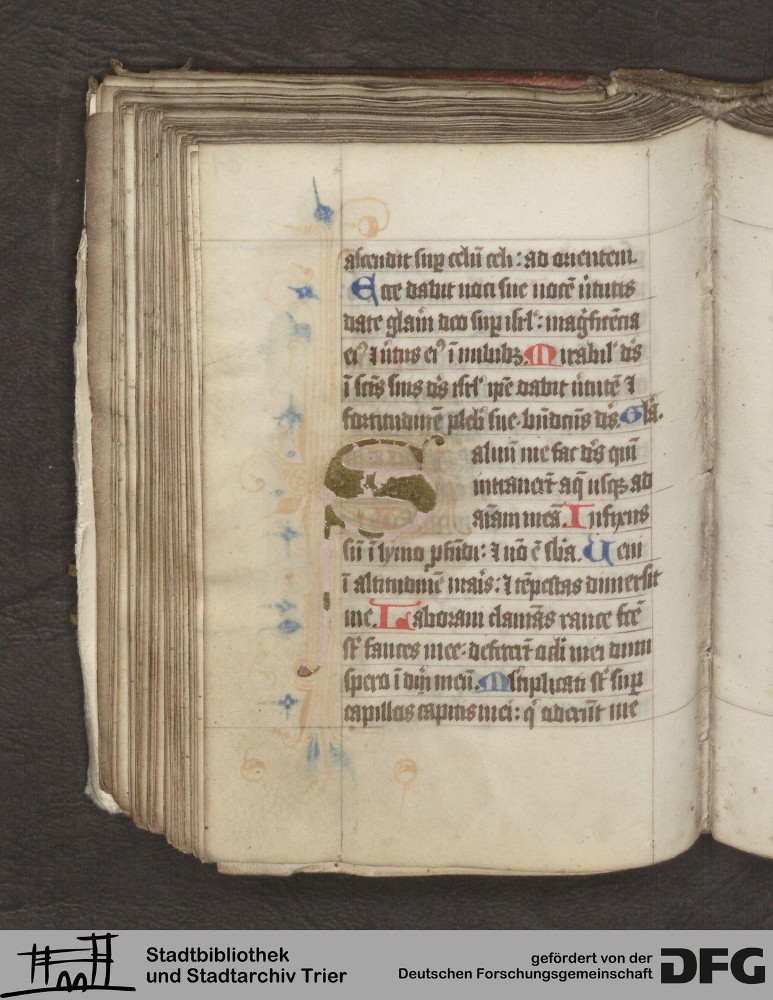 ascendit sup celū celi: ad orientem.
Ecce dabit uoci sue uocē ūtutis
date glaȷ̄m deo sup isrl': magȷ̄ficēcia
ei⁹ ⁊ ūtus ei⁹ ī nubibꝫ. Mirabil' dſ̄
ī scīs suis dſ̄ isrl' ip̄e dabit ūtutē ⁊
fortitudinē plebi sue. bn̄dcūs dſ̄. Gla.
aluū me fac dſ̄ qm̄
intrauert̄ aq̄ usqꝫ ad
aīam meā. Infixus
sū ī lymo ꝓfūdi: ⁊ nō ē sb̄a. Ueni
ī altitudinē maīs: ⁊ tēpestas dimersit
me. Laboraui clamās rauce fcē
st̄ fauces mee. defecert̄ oc̄li mei dum
spero ī dm̄ meū. Ml'tiplicati st̄ sup
capillos capitis mei: q̇ oderūt me
Stadtbibliothek
und Stadtarchiv Trier
gefördert von der
Deutschen Forschungsgemeinschaft
DFG